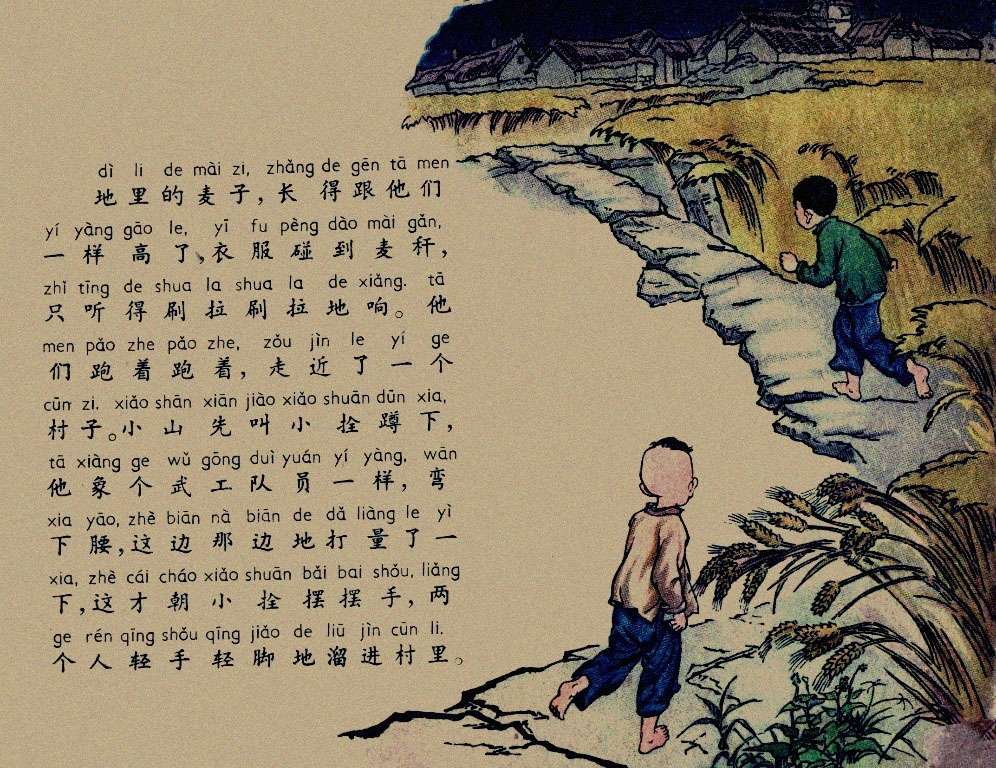 dì li de mài zi, zhǎng de gēn tā men
地里的麦子,长得跟他们
yí yàng gāo le, yī fu pèng dào mài gǎn,
一样高了,衣服碰到麦秆,
zhǐ tīng de shua la shua la de xiǎng. tā
只听得刷拉刷拉地响。他
men pǎo zhe pǎo zhe, zǒu jìn le yí ge
们跑着跑着,走近了一个
cūn zi. xiǎo shān xiān jiào xiǎo shuān dūn xia,
村子。小山先叫小拴蹲下,
tā xiàng ge wǔ gōng duì yuán yí yàng, wān
他象个武工队员一样,弯
xia yāo, zhè biān nà biān de dǎ liàng le yì
下腰,这边那边地打量了一
xia, zhè cái cháo xiǎo shuān bǎi bai shǒu, liǎng
下,这才朝小拴摆摆手,两
ge rén qīng shǒu qīng jiǎo de liū jìn cūn li.
个人轻手轻脚地溜进村里。